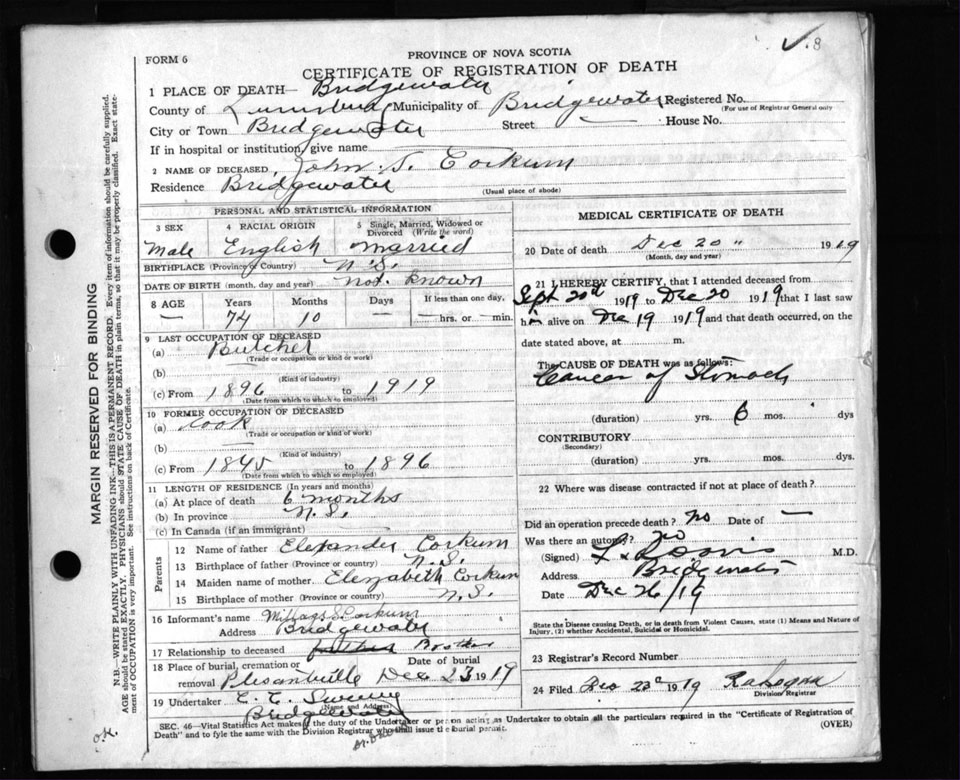 8
PROVINCE OF NOVA SCOTIA
FORM 6
CERTIFICATE OF REGISTRATION OF DEATH
1 PLACE OF DEATH— Bridgewater
County of Lunenburg Municipality of Bridgewater Registered No.
(For use of Registrar General only
City or Town Bridgewater Street — House No.
If in hospital or institution, give name
2 NAME OF DECEASED, John S. Corkum
Residence Bridgewater
(Usual place of abode)
PERSONAL AND STATISTICAL INFORMATION
3 SEX 4 RACIAL ORIGIN 5 Single, Married, Widowed or Divorced (Write the word)
Male English Married
BIRTHPLACE (Province or Country) N.S.
DATE OF BIRTH (month, day and year) not known
8 AGE Years Months Days If less than one day,
— 74 10 — — hrs. or — min.
9 LAST OCCUPATION OF DECEASED
(a) Butcher
(Trade or occupation or kind or work)
(b)
(Kind of industry)
(c) From 1896 to 1919
(Date from which to which so employed)
10 FORMER OCCUPATION OF DECEASED
(a) Cook
(Trade or occupation or kind of work)
(b) —
(Kind of industry)
(c) From to 1896
(Date from which to which so employed)
11 LENGTH OF RESIDENCE (In years and months)
(a) At place of death 6 months
(b) In province N.S.
(c) In Canada (if an immigrant)
Parents
12 Name of father Elexander Corkum
13 Birthplace of father (Province or country) N.S.
14 Maiden name of mother Elezabeth Corkum
15 Birthplace of mother (Province or country) N.S.
16 Informant's name Corkum
Address Bridgewater
17 Relationship to deceased Brother
18 Place of burial, cremation or removal Plesantville Date of burial Dec 23 1919
19 Undertaker E. E. Sweeny
(Name and Address)
Bridgewater
MEDICAL CERTIFICATE OF DEATH
20 Date of death Dec 20 " 1919
(Month, day and year)
21 I HEREBY CERTIFY, that I attended deceased from
Sept 20th 1919 to Dec 20 1919 that I last saw
him alive on Dec 19 1919 and that death occurred, on the
date stated above, at m.
The CAUSE OF DEATH was as follows:
Cancer of Stomach
(duration) yrs. 6 mos. dys
CONTRIBUTORY
(Secondary)
(duration) yrs. mos. dys.
22 Where was disease contracted if not at place of death?
Did an operation precede death? no Date of —
Was there an autopsy? no
(Signed) M.D.
Address Bridgewater
Date Dec 26/19
State the Disease causing Death, or in death from Violent Causes, state (1) Means and Nature of
Injury, (2) whether Accidental, Suicidal or Homicidal.
23 Registrar's Record Number
24 Filed Dec 1919
Division Registrar
SEC. 46—Vital Statistics Act makes the duty of the Undertaker or person acting as Undertaker to obtain all the particulars required in the "Certificate of Registration of
Death" and to fyle the same with the Division Registrar who will issue the burial permit. (OVER)
O.K.
MARGIN RESERVED FOR BINDING
N.B.—WRITE PLAINLY WITH UNFADING INK—THIS IS A PERMANENT RECORD. Every item of information should be carefully supplied.
AGE should be stated EXACTLY. PHYSICIANS should STATE CAUSE OF DEATH in plain terms, so that it may be properly classified. Exact statement
of OCCUPATION is very important. See instructions on back of Certificate.